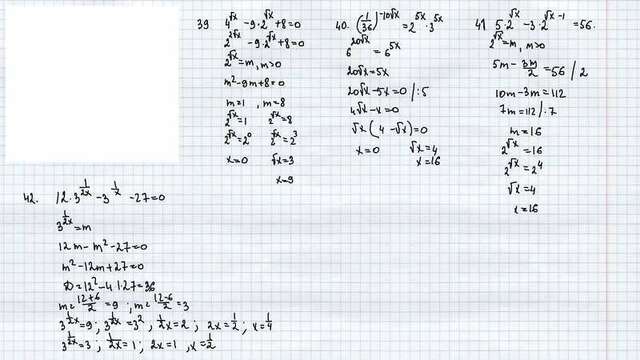 39. 4^√x - 9·2^√x + 8 = 0
2^2√x - 9·2^√x + 8 = 0
2^√x = m, m>0
m² - 9m + 8 = 0
m = 1 , m = 8
2^√x = 1 2^√x = 8
2^√x = 2^0 2^√x = 2^3
x = 0 √x = 3
x = 9
40. (1/36)^-10√x = 2^5x · 3^5x
6^20√x = 6^5x
20√x = 5x
20√x - 5x = 0 /:5
4√x - x = 0
√x (4 - √x) = 0
x = 0 √x = 4
x = 16
41. 5·2^√x - 3·2^√x-1 = 56.
2^√x = m, m>0
5m - 3m/2 = 56 / 2
10m - 3m = 112
7m = 112 /:7
m = 16
2^√x = 16
2^√x = 2^4
√x = 4
x = 16
42. 12·3^1/2x - 3^1/x - 27 = 0
3^1/2x = m
12m - m² - 27 = 0
m² - 12m + 27 = 0
D = 12² - 4·1·27 = 36
m = 12+6/2 = 9 ; m = 12-6/2 = 3
3^1/2x = 9 ; 3^1/2x = 3² ; 1/2x = 2 ; 2x = 1/2 ; x = 1/4
3^1/2x = 3 ; 1/2x = 1 ; 2x = 1 , x = 1/2